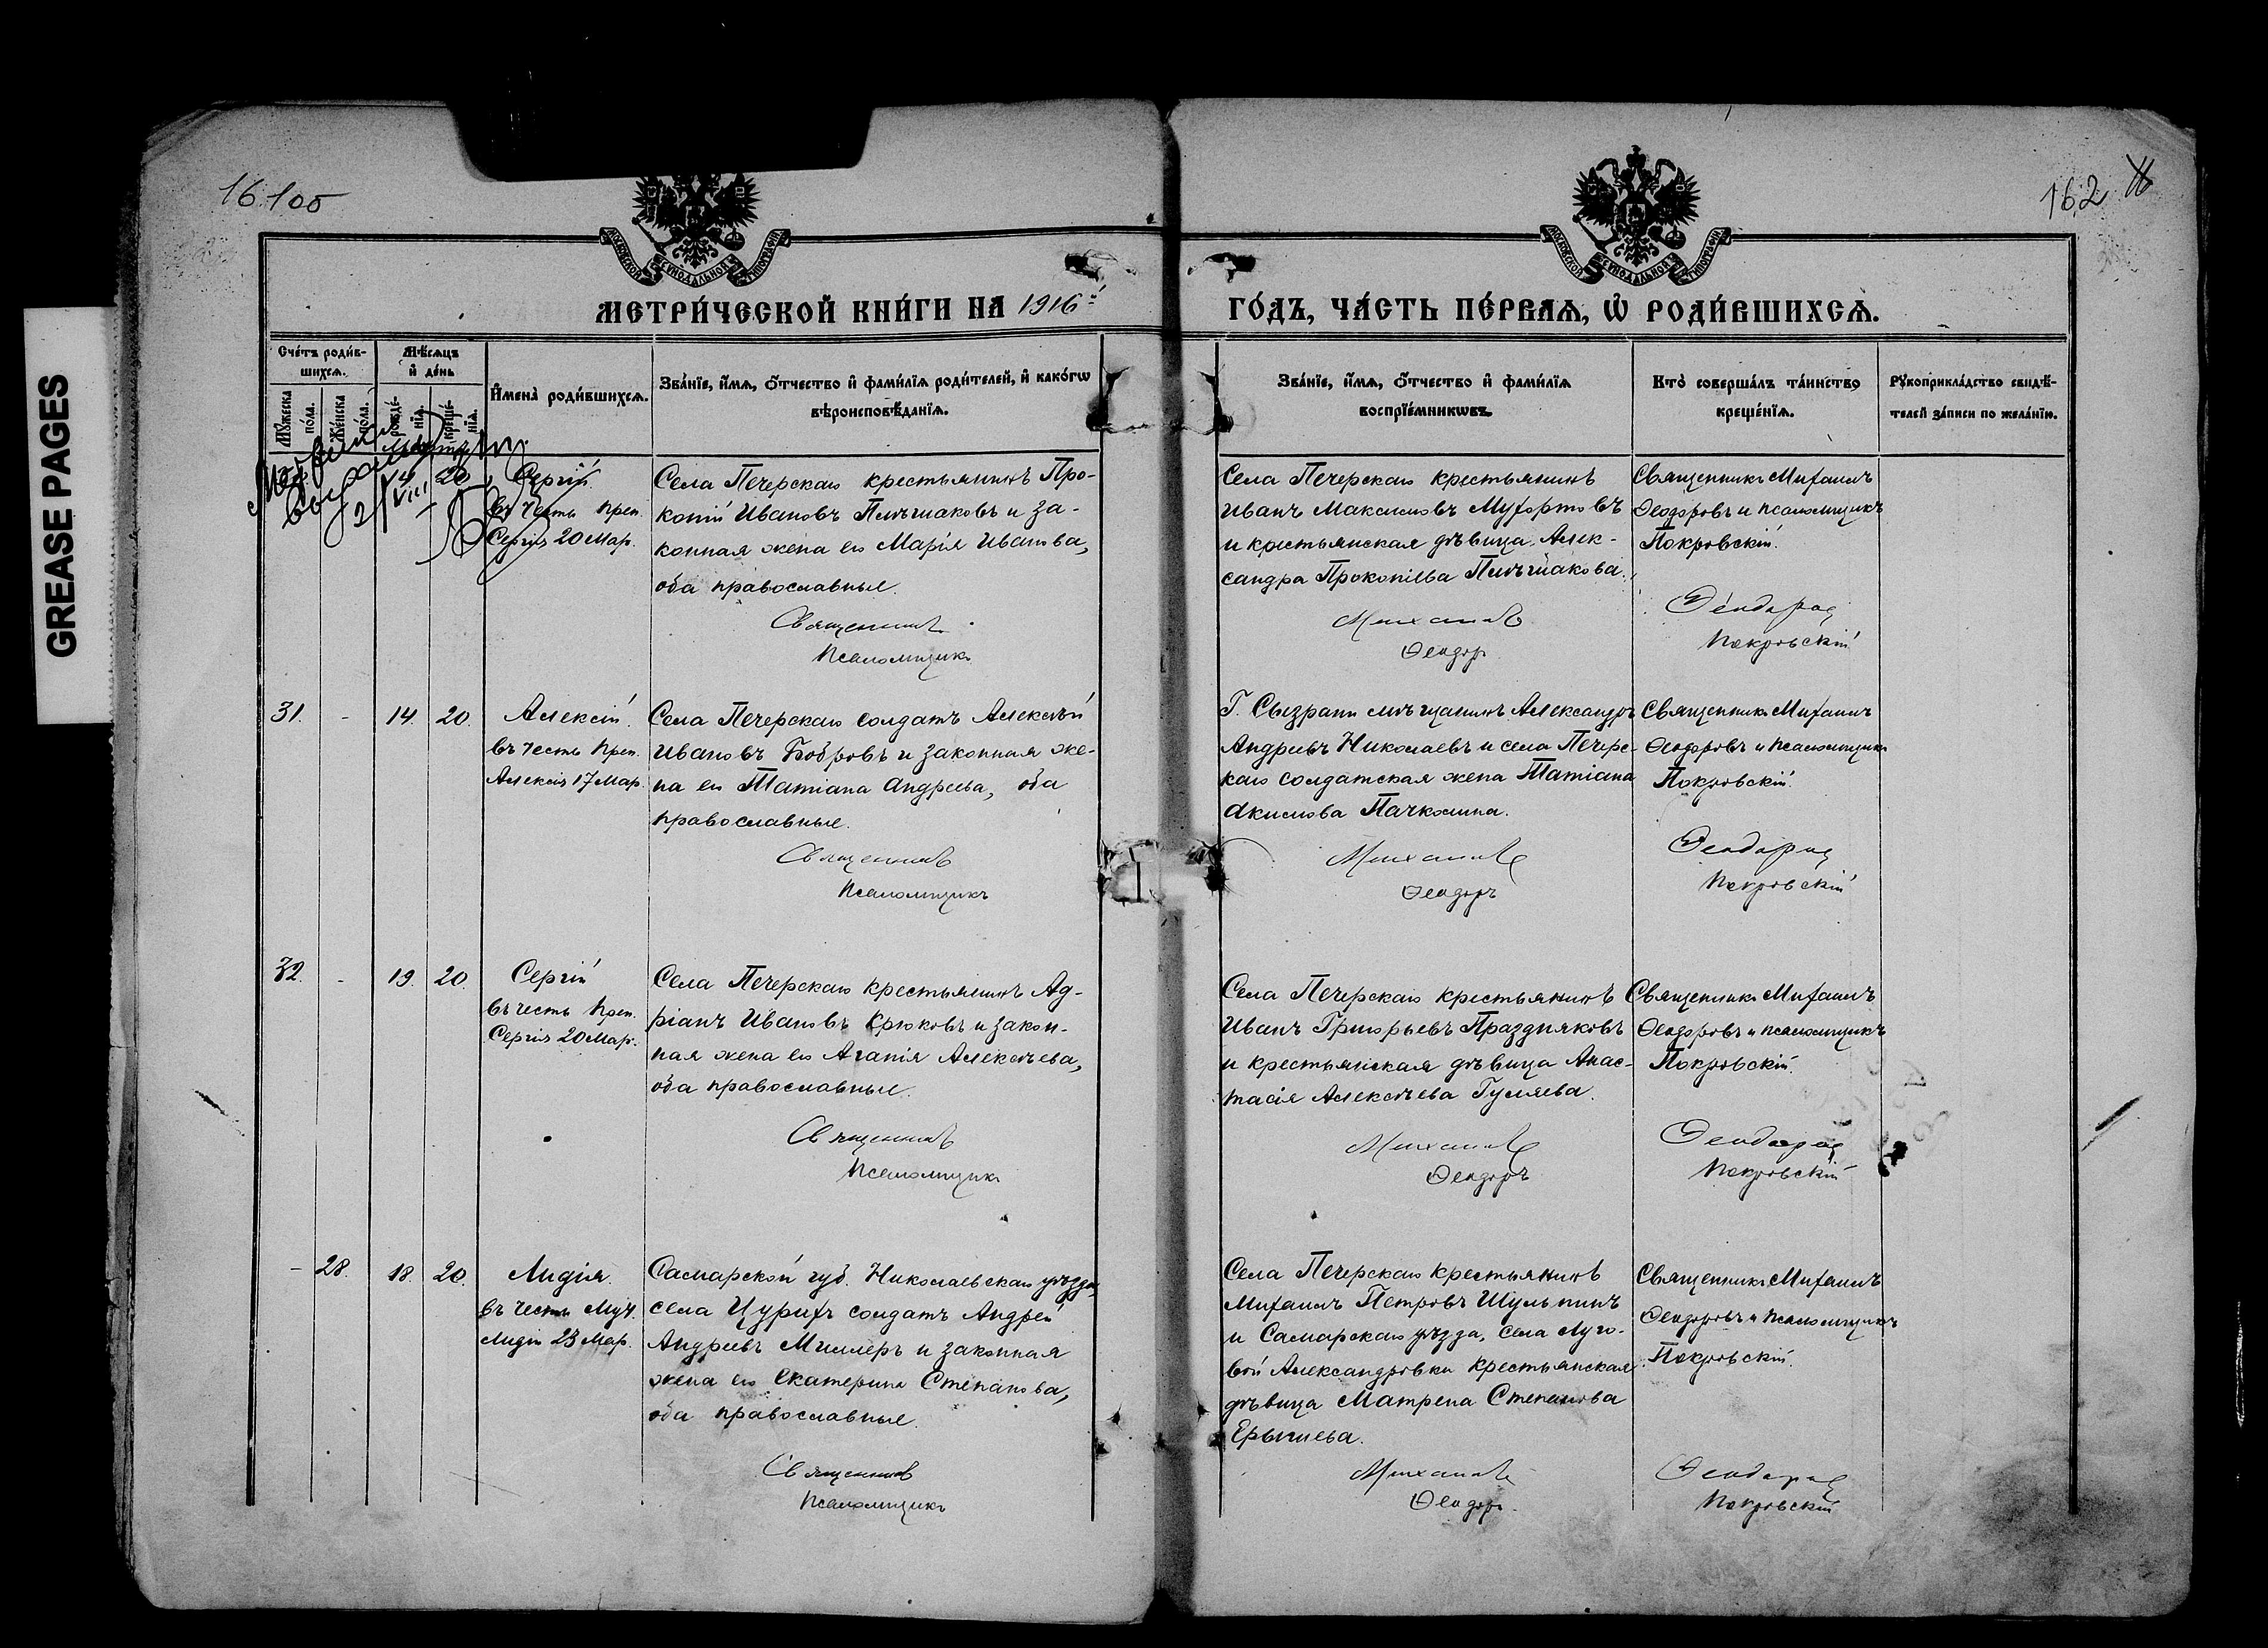 GREASE PAGES
16 100
162
МОСКОВСКОЙ СѴНОДАЛЬНОЙ ТИПОГРАФІИ
МОСКОВСКОЙ СѴНОДАЛЬНОЙ ТИПОГРАФІИ
МЕТРИ́ЧЕСКОЙ КНИ́ГИ НА 1916й
ГО́ДЪ, ЧА́СТЬ ПЕ́РВАѦ, Ѡ҆ РОДИ́ВШИХСѦ.
Сче́тъ роди́в-
шихсѧ.
Мѣ́сѧцъ
и҆ де́нь
Мꙋ́жеска
по́ла.
Же́нска
по́ла.
рожде́-
нїѧ.
креще́-
нїѧ.
И҆мена̀ роди́вшихсѧ.
Зва́нїе, и҆́мѧ, ѻ҆́тчество и҆ фами́лїѧ роди́телей, и҆ како́гѡ
вѣроисповѣ́данїѧ.
Зва́нїе, и҆́мѧ, ѻ҆́тчество и҆ фами́лїѧ
воспрїе́мникѡвъ.
Кто̀ соверша́лъ та́инство
креще́нїѧ.
Рꙋкоприкла́дство свидѣ́-
телей за́писи по жела́нїю.
14 20
Сергій
въ честь преп.
Сергія 20 Мар.
Села Печерскаго крестьянинъ Про-
копій Ивановъ Плѣшаковъ и за-
конная жена его Марія Иванова,
оба православные.
Священникъ
Псаломщикъ
Села Печерскаго крестьянинъ
Иванъ Максимовъ Мухортовъ
и крестьянская дѣвица Алек-
сандра Прокопіева Плѣшакова.
Михаилъ
Ѳеодоръ
Священникъ Михаилъ
Ѳеодоровъ и псаломщикъ
Покровскій.
Ѳеодоровъ
Покровскій
31. - 14. 20.
Алексій.
въ честь преп.
Алексія 17 Мар.
Села Печерскаго солдатъ Алексѣй
Ивановъ Бобровъ и законная же-
на его Татіана Андреева, оба
православные.
Священникъ
Псаломщикъ
Г. Сызрани мѣщанинъ Александръ
Андреевъ Николаевъ и села Печерс-
каго солдатская жена Татіана
Акимова Пачколина.
Михаилъ
Ѳеодоръ
Священникъ Михаилъ
Ѳеодоровъ и псаломщикъ
Покровскій.
Ѳеодоровъ
Покровскій
32. - 19. 20.
Сергій
въ честь преп.
Сергія 20 Мар.
Села Печерскаго крестьянинъ Ад-
ріанъ Ивановъ Крюковъ и закон-
ная жена его Агапія Алексѣева,
оба православные.
Священникъ
Псаломщикъ
Села Печерскаго крестьянинъ
Иванъ Григорьевъ Праздняковъ
и крестьянская дѣвица Анас-
тасія Алексѣева Гуляева.
Михаилъ
Ѳеодоръ
Священникъ Михаилъ
Ѳеодоровъ и псаломщикъ
Покровскій.
Ѳеодоровъ
Покровскій
- 28. 18. 20.
Лидія.
въ честь Муч.
Лидіи 23 Мар.
Самарской губ. Николаевскаго уѣзда,
села Цурихъ солдатъ Андрей
Андреевъ Миллеръ и законная
жена его Екатерина Степанова,
оба православные.
Священникъ
Псаломщикъ
Села Печерскаго крестьянинъ
Михаилъ Петровъ Шульпинъ
и Самарскаго уѣзда, села Луго-
вой Александровки крестьянская
дѣвица Матрена Степанова
Ерычева.
Михаилъ
Ѳеодоръ
Священникъ Михаилъ
Ѳеодоровъ и псаломщикъ
Покровскій.
Ѳеодоровъ
Покровскій